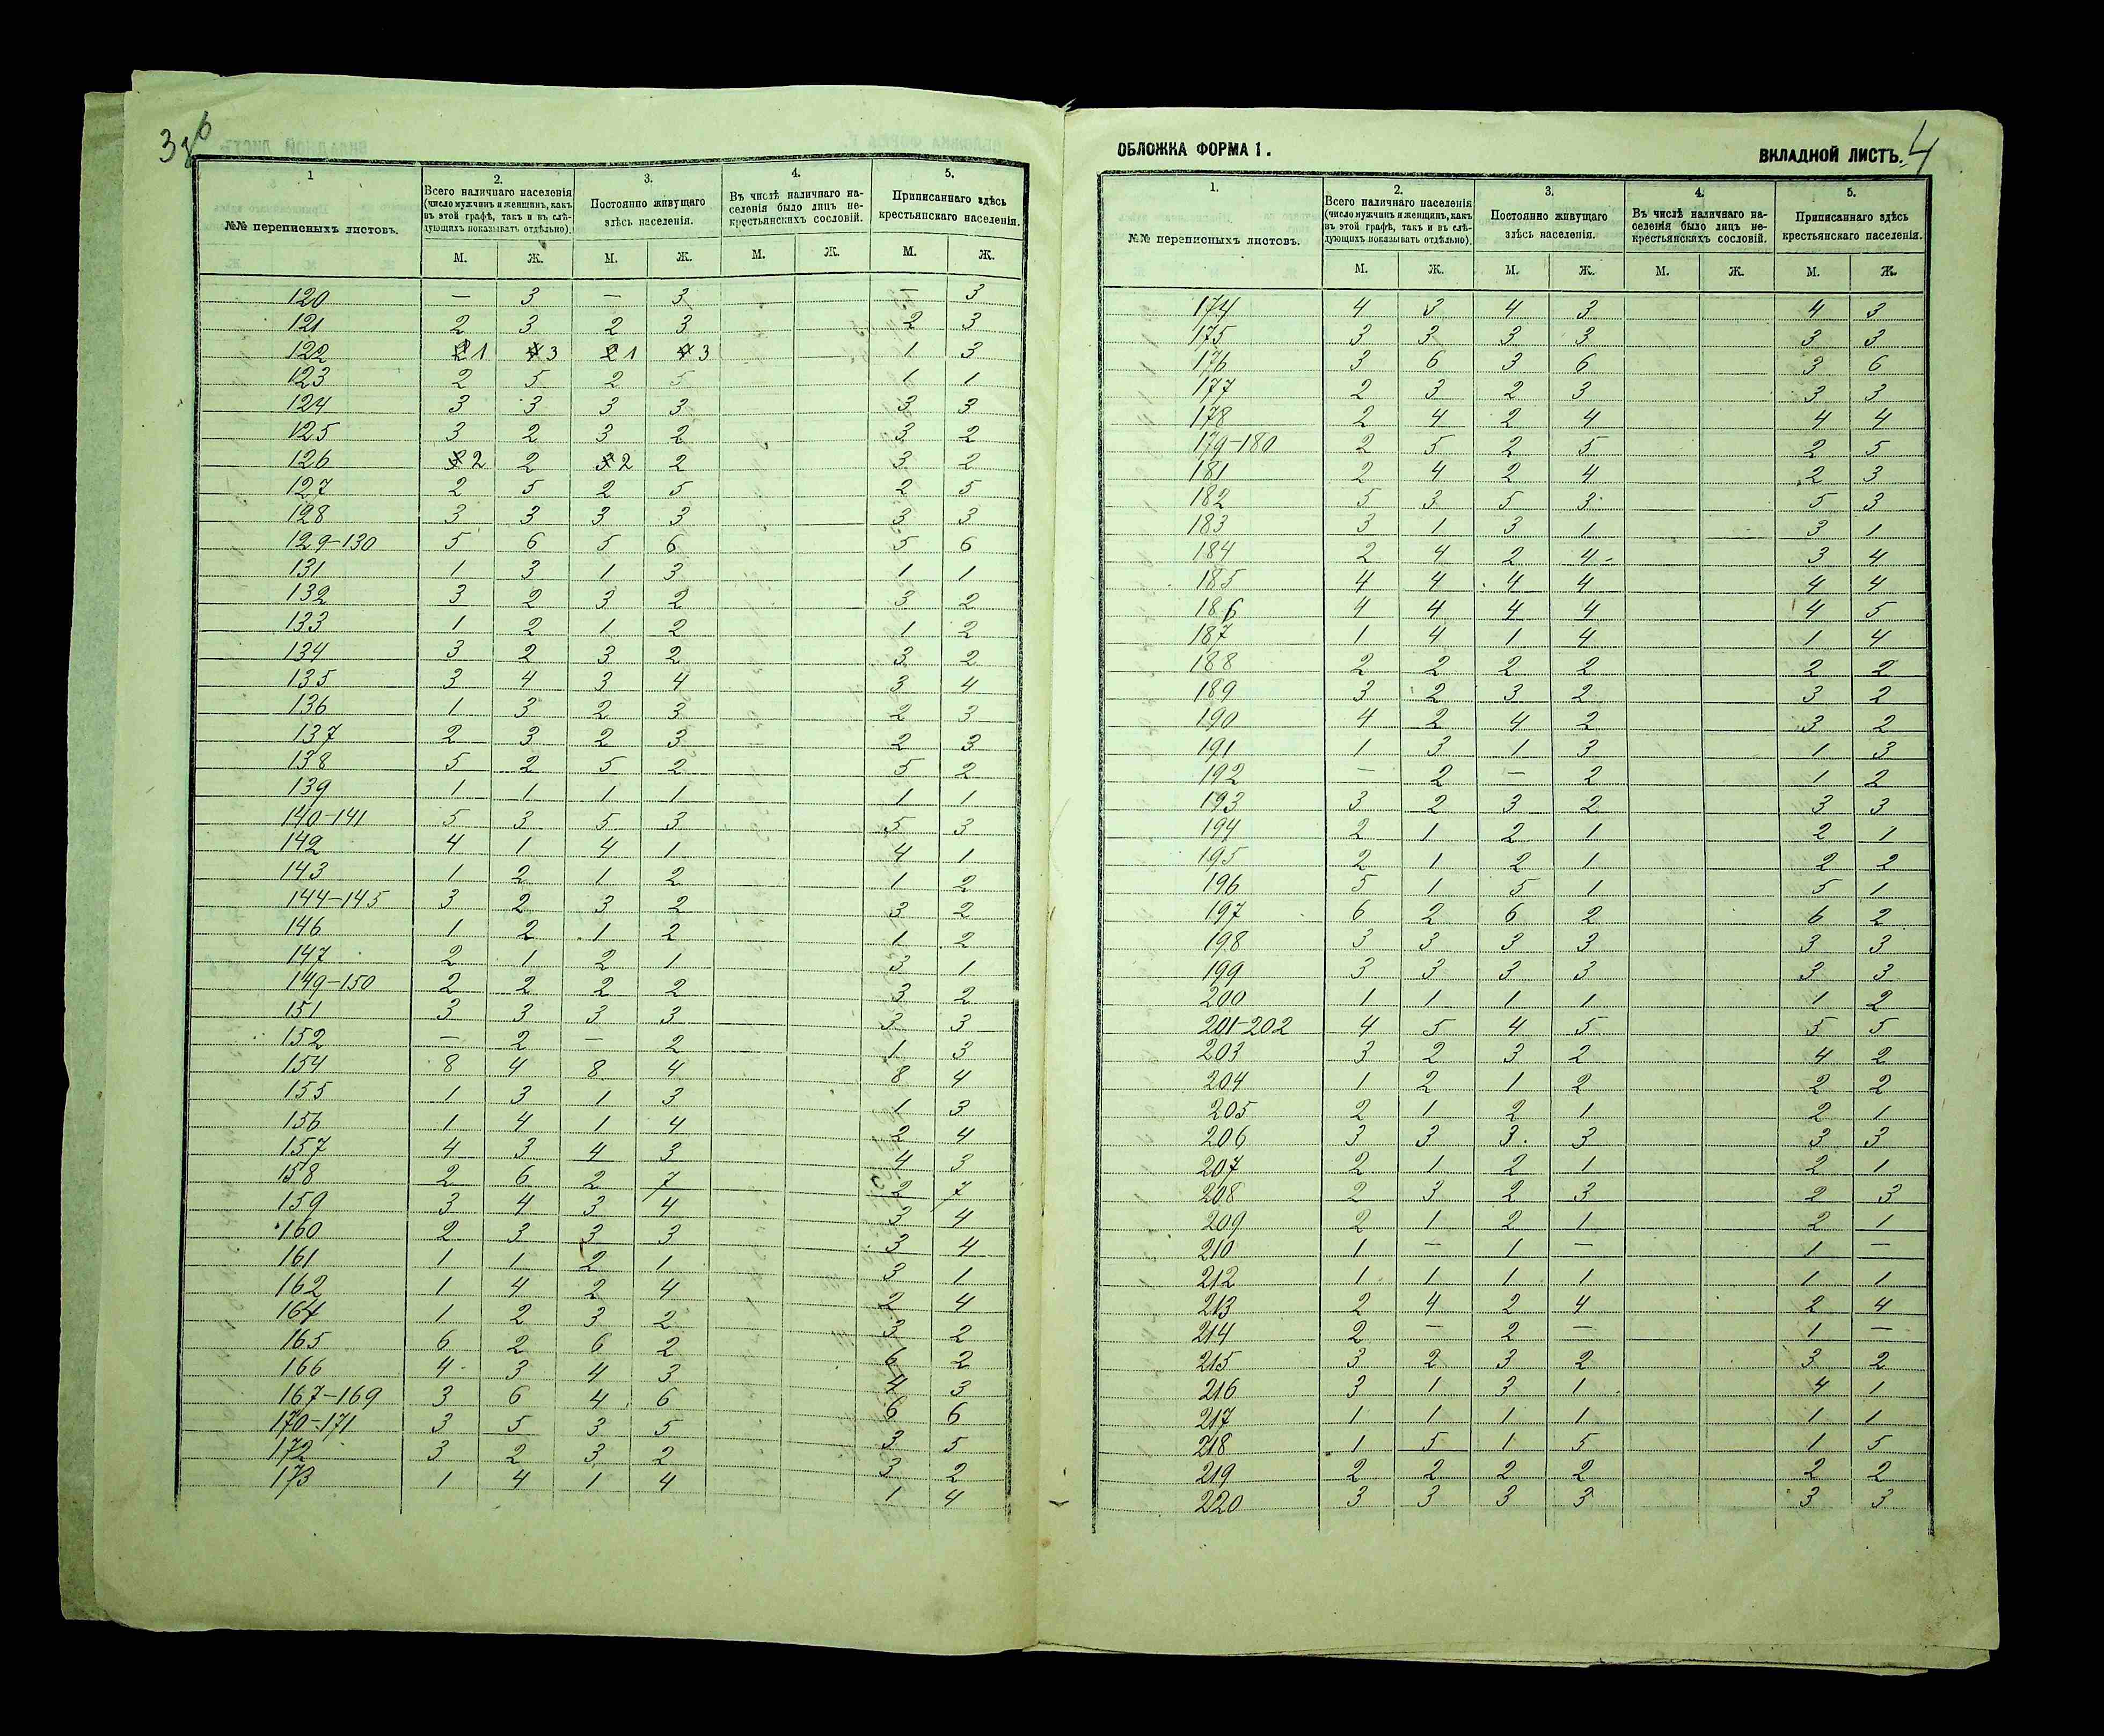 3 об
1
2.
3.
4.
5.
№№ переписныхъ листовъ.
Всего наличнаго населенія
(число мужчинъ и женщинъ, какъ
въ этой графѣ, такъ и въ слѣ-
дующихъ показывать отдѣльно).
Постоянно живущаго
здѣсь населенія.
Въ числѣ наличнаго на-
селенія было лицъ не-
крестьянскихъ сословій.
Приписаннаго здѣсь
крестьянскаго населенія.
М. Ж. М. Ж. М. Ж. М. Ж.
120 — 3 — 3 — 3
121 2 3 2 3 2 3
122 2 1 4 3 2 1 4 3 1 3
123 2 5 2 5 1 1
124 3 3 3 3 3 3
125 3 2 3 2 3 2
126 3 2 2 3 2 2 3 2
127 2 5 2 5 2 5
128 3 3 3 3 3 3
129-130 5 6 5 6 5 6
131 1 3 1 3 1 1
132 3 2 3 2 3 2
133 1 2 1 2 1 2
134 3 2 3 2 3 2
135 3 4 3 4 3 4
136 1 3 2 3 2 3
137 2 3 2 3 2 3
138 5 2 5 2 5 2
139 1 1 1 1 1 1
140-141 5 3 5 3 5 3
142 4 1 4 1 4 1
143 1 2 1 2 1 2
144-145 3 2 3 2 3 2
146 1 2 1 2 1 2
147 2 1 2 1 3 1
149-150 2 2 2 2 3 2
151 3 3 3 3 3 3
152 — 2 — 2 1 3
154 8 4 8 4 8 4
155 1 3 1 3 1 3
156 1 4 1 4 2 4
157 4 3 4 3 4 3
158 2 6 2 7 2 7
159 3 4 3 4 3 4
160 2 3 3 3 3 4
161 1 1 2 1 3 1
162 1 4 2 4 2 4
164 1 2 3 2 3 2
165 6 2 6 2 6 2
166 4 3 4 3 4 3
167-169 3 6 4 6 6 6
170-171 3 5 3 5 3 5
172 3 2 3 2 3 2
173 1 4 1 4 1 4
ОБЛОЖКА ФОРМА 1.
ВКЛАДНОЙ ЛИСТЪ.
4
1.
2.
3.
4.
5.
№№ переписныхъ листовъ.
Всего наличнаго населенія
(число мужчинъ и женщинъ, какъ
въ этой графѣ, такъ и въ слѣ-
дующихъ показывать отдѣльно).
Постоянно живущаго
здѣсь населенія.
Въ числѣ наличнаго на-
селенія было лицъ не-
крестьянскихъ сословій.
Приписаннаго здѣсь
крестьянскаго населенія.
М. Ж. М. Ж. М. Ж. М. Ж.
174 4 3 4 3 4 3
175 3 3 3 3 3 3
176 3 6 3 6 3 6
177 2 3 2 3 3 3
178 2 4 2 4 4 4
179-180 2 5 2 5 2 5
181 2 4 2 4 2 3
182 5 3 5 3 5 3
183 3 1 3 1 3 1
184 2 4 2 4 3 4
185 4 4 4 4 4 4
186 4 4 4 4 4 5
187 1 4 1 4 1 4
188 2 2 2 2 2 2
189 3 2 3 2 3 2
190 4 2 4 2 3 2
191 1 3 1 3 1 3
192 — 2 — 2 1 2
193 3 2 3 2 3 3
194 2 1 2 1 2 1
195 2 1 2 1 2 2
196 5 1 5 1 5 1
197 6 2 6 2 6 2
198 3 3 3 3 3 3
199 3 3 3 3 3 3
200 1 1 1 1 1 2
201-202 4 5 4 5 5 5
203 3 2 3 2 4 2
204 1 2 1 2 2 2
205 2 1 2 1 2 1
206 3 3 3 3 3 3
207 2 1 2 1 2 1
208 2 3 2 3 2 3
209 2 1 2 1 2 1
210 1 — 1 — 1 —
212 1 1 1 1 1 1
213 2 4 2 4 2 4
214 2 — 2 — 1 —
215 3 2 3 2 3 2
216 3 1 3 1 4 1
217 1 1 1 1 1 1
218 1 5 1 5 1 5
219 2 2 2 2 2 2
220 3 3 3 3 3 3